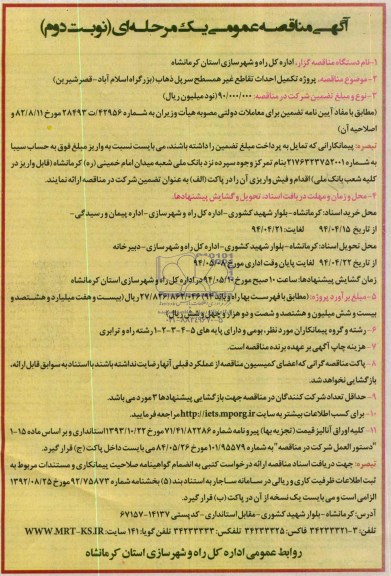 آگهی مناقصه عمومی یک مرحله‌ای (نوبت دوم)
۱-نام دستگاه مناقصه گزار: اداره کل راه و شهرسازی استان کرمانشاه
۲-موضوع مناقصه: پروژه تکمیل احداث تقاطع غیر همسطح سرپل ذهاب (بزرگراه اسلام آباد-قصرشیرین)
۳-نوع و مبلغ تضمین شرکت در مناقصه: ۹۰/۰۰۰/۰۰۰ (نود میلیون ریال)
(مطابق با مفاد آیین نامه تضمین برای معاملات دولتی مصوبه هیأت وزیران به شماره ۴۲۹۵۶/ت ۲۸۴۹۳ مورخ ۸۲/۸/۱۱ و
اصلاحیه آن)
تبصره: پیمانکارانی که تمایل به پرداخت مبلغ تضمین را داشته باشند، می بایست نسبت به واریز مبلغ فوق به حساب سیبا
به شماره ۲۱۷۶۳۲۳۷۵۲۰۰۱ بنام تمرکز وجوه سپرده نزد بانک ملی شعبه میدان امام خمینی (ره) کرمانشاه (قابل واریز در
کلیه شعب بانک ملی) اقدام و فیش واریزی آن را در پاکت (الف) به عنوان تضمین شرکت در مناقصه ارائه نمایند.
۴-محل و زمان و مهلت دریافت اسناد، تحویل و گشایش پیشنهادها:
محل خرید اسناد: کرمانشاه-بلوار شهید کشوری-اداره کل راه و شهرسازی-اداره پیمان و رسیدگی-
از تاریخ ۹۴/۰۴/۱۵ لغایت: ۹۴/۰۴/۲۱
محل تحویل اسناد: کرمانشاه-بلوار شهید کشوری-اداره کل راه و شهرسازی-دبیرخانه
از تاریخ ۹۴/۰۴/۲۲ لغایت پایان وقت اداری مورخ ۹۴/۰۵/۰۸
زمان گشایش پیشنهادها: ساعت ۱۰ صبح مورخ ۹۴/۰۵/۱۰ در اداره کل راه و شهرسازی استان کرمانشاه
۵-مبلغ برآورد پروژه: (مطابق با فهرست بهاء راه و باند ۹۴) ۲۷/۸۲۶/۸۶۲/۰۴۶ ریال (بیست و هفت میلیارد و هشتصد و
بیست و شش میلیون و هشتصد و شصت و دو هزار و چهل و شش ریال)
۶-رشته و گروه پیمانکاران مورد نظر: بومی و دارای پایه های ۵-۴-۳-۲-۱ رشته راه و ترابری
۷-هزینه چاپ آگهی بر عهده برنده مناقصه است.
۸-پاکت مناقصه گرانی که اعضای کمیسیون مناقصه از عملکرد قبلی آنها رضایت نداشته باشند با استناد به سوابق قابل ارائه،
بازگشایی نخواهد شد.
۹-حداقل تعداد شرکت کنندگان در مناقصه جهت بازگشایی پیشنهادها ۳ مورد می باشد.
۱۰-برای کسب اطلاعات بیشتر به سایت http://iets.mporg.ir مراجعه فرمایید.
۱۱-کلیه اوراق آنالیز قیمت (تجزیه بها) پیرو نامه شماره ۷۱/۴۱/۸۲۲۸۶ مورخ ۱۳۹۳/۱۰/۲۲ استانداری و بر اساس ماده ۱۵-۱
"دستورالعمل شرکت در مناقصه" به شماره ۱۰۱/۹۵۵۷۹ مورخ ۸۴/۰۵/۲۶ می بایست داخل پاکت (ج) قرار گیرد.
تبصره: جهت دریافت اسناد مناقصه ارائه درخواست کتبی به انضمام گواهینامه صلاحیت پیمانکاری و مستندات مربوط به
ثبت اطلاعات ظرفیت کاری و ریالی در سامانه ساجار به استناد بند (۵) بخشنامه شماره ۹۲/۷۵۸۷۳ مورخ ۱۳۹۲/۰۸/۲۵
الزامی است و می بایست یک نسخه از آن در پاکت (ب) قرار گیرد.
آدرس: کرمانشاه-بلوار شهید کشوری-مقابل استانداری-کدپستی ۱۴۱۳۷-۶۷۱۵۷
تلفن: ۳-۳۴۲۳۳۳۲۱ فاکس: ۳۴۲۳۳۳۲۵ تلفکس: ۳۴۲۳۳۳۳۳ تلفن گویا: ۱۴۱ سایت: WWW.MRT-KS.IR
روابط عمومی اداره کل راه و شهرسازی استان کرمانشاه